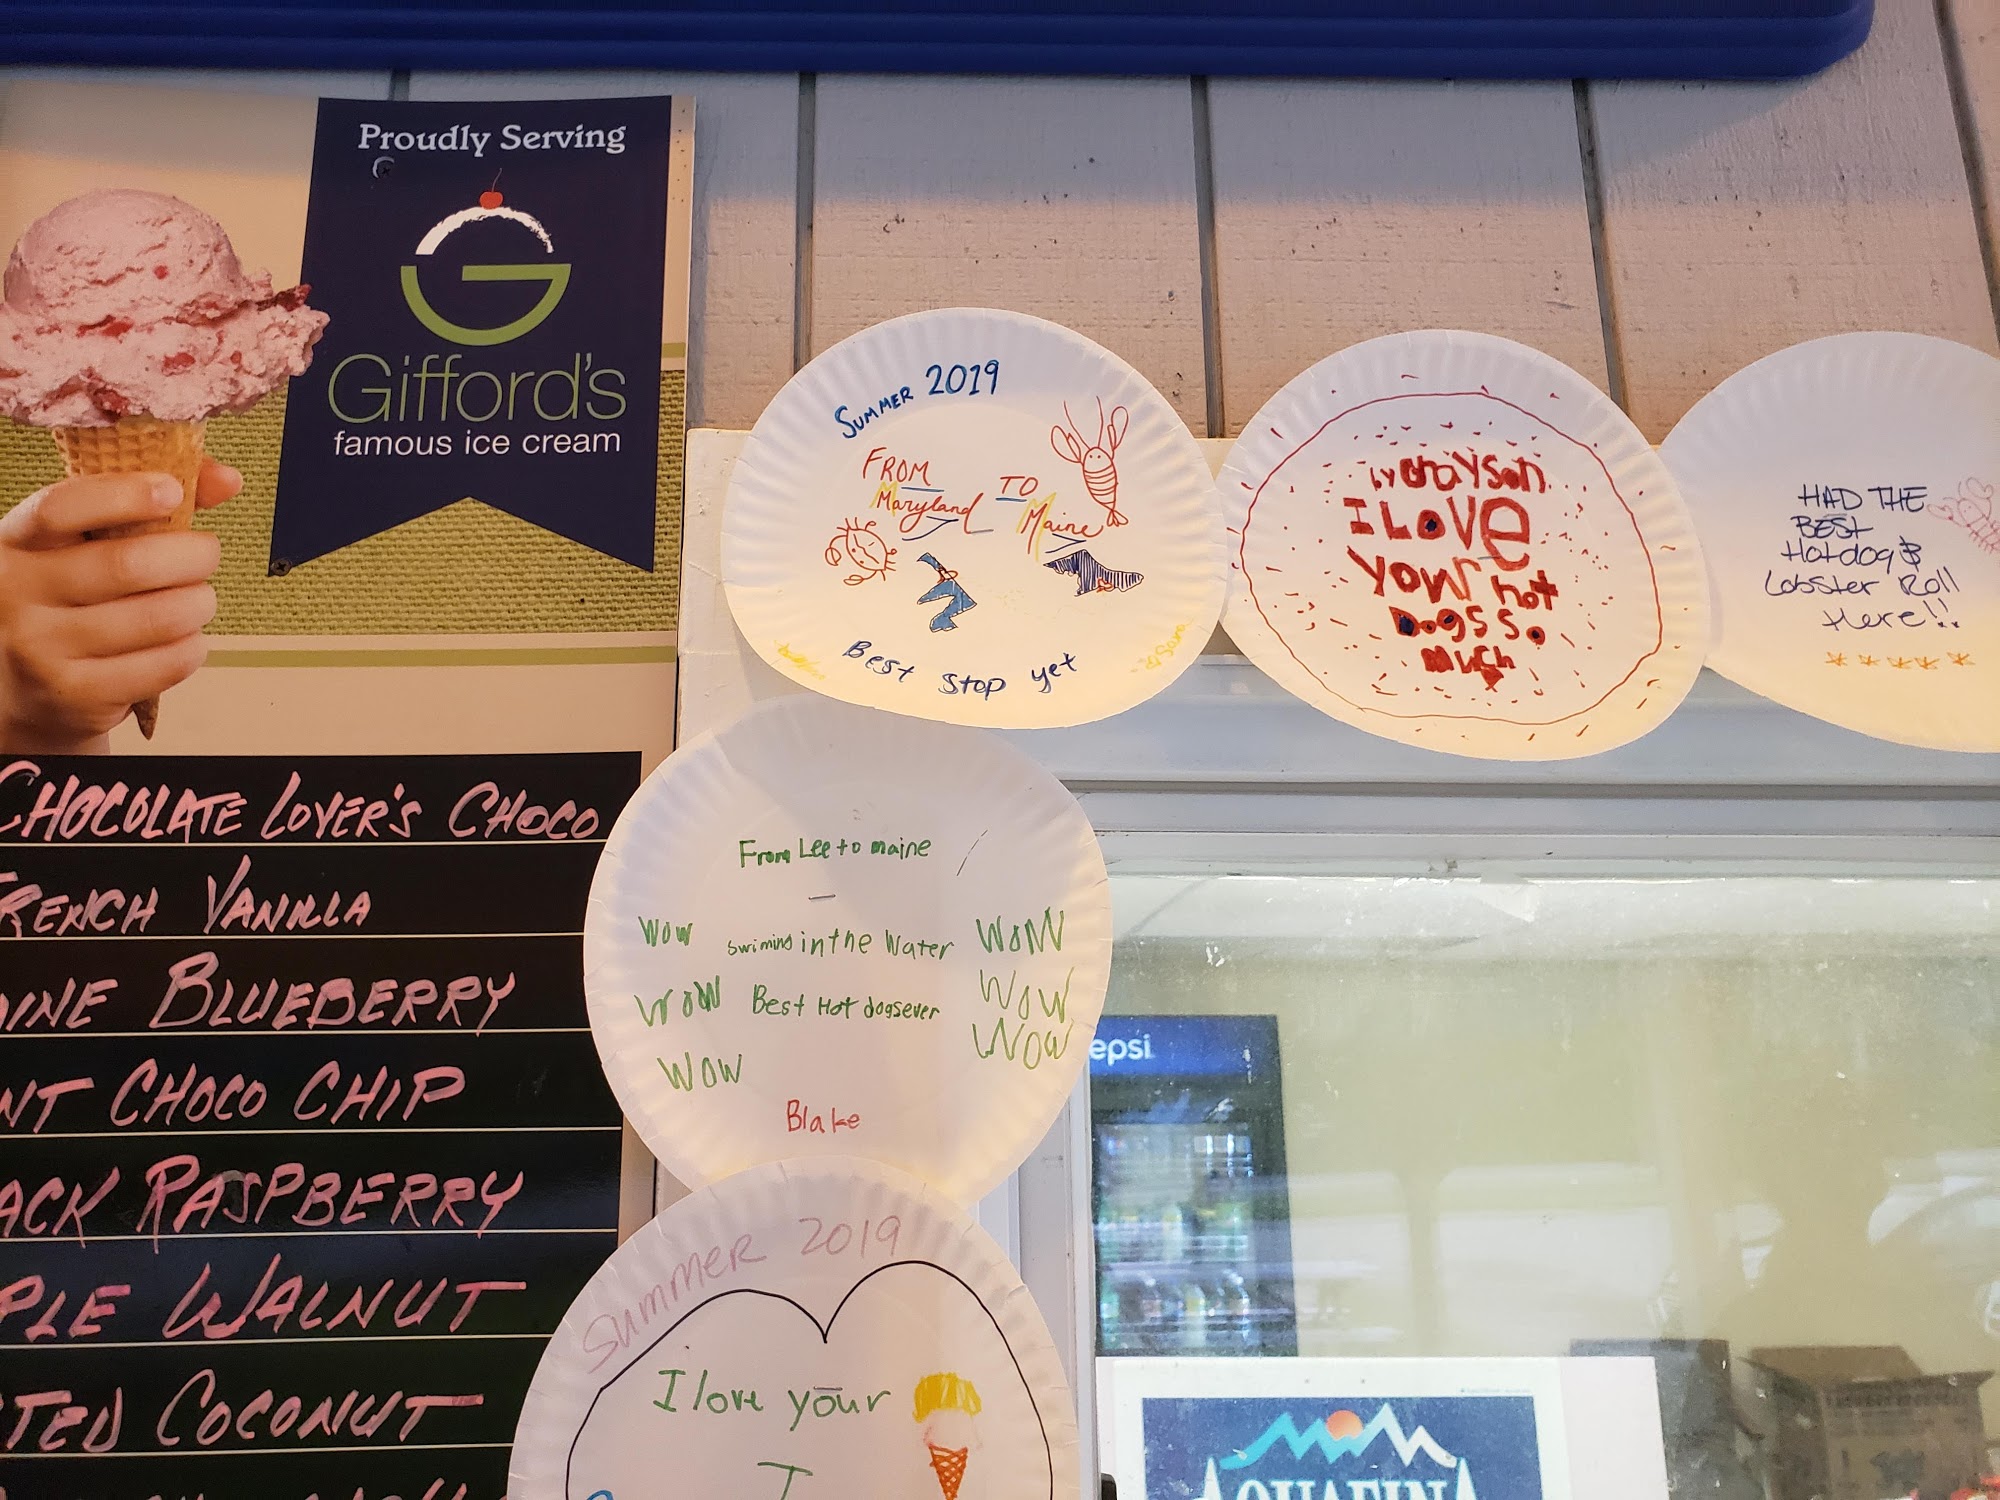 Proudly Serving
Gifford's
famous ice cream
CHOCOLATE LOVER'S CHOCO
FRENCH VANILLA
AINE BLUEBERRY
NT CHOCO CHIP
ACK RASPBERRY
PLE WALNUT
TED COCONUT
SUMMER 2019
FROM
Maryland
TO
Maine
Best Stop yet
Sara
by Grayson
I LOVE
YOUr hot
DOGS SO
MUCH
HAD THE
BEST
Hotdog &
Lobster Roll
Here!!
From Lee to maine
WOW swiming in the Water WOW
WOW Best Hot dogs ever WOW
WOW WOW
Blake
Summer 2019
I love your
I
epsi
AQUAFINA